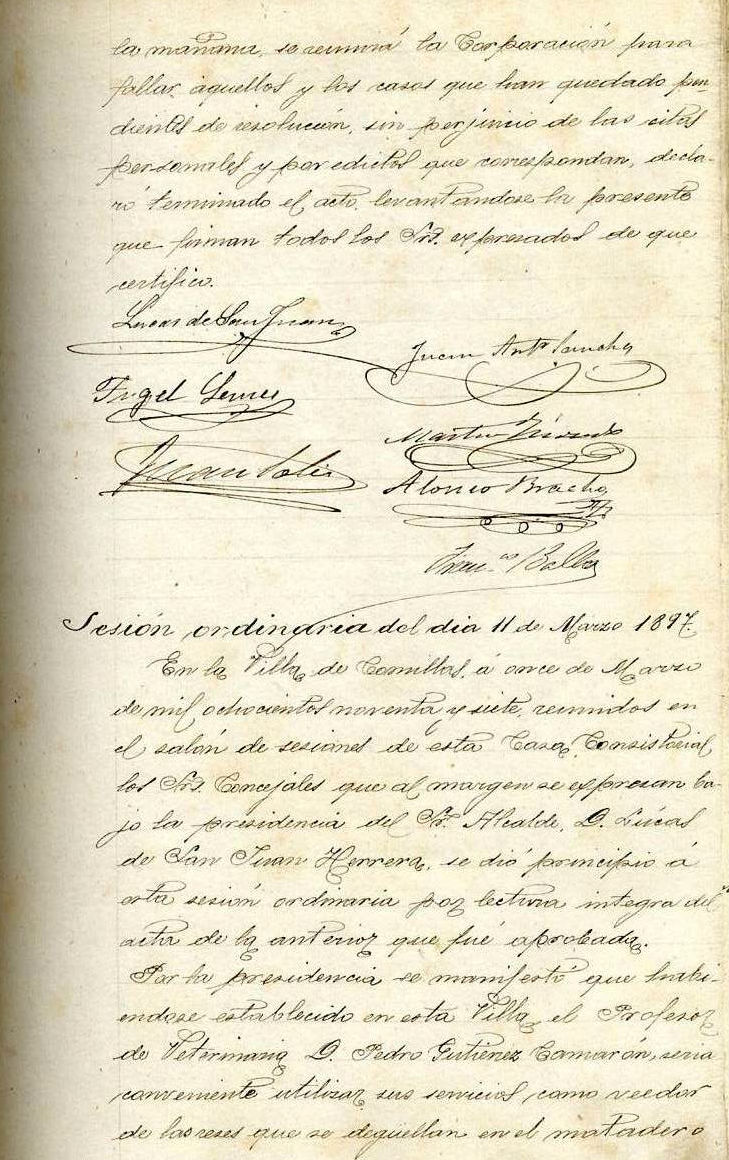 la mañana, se reunirá la Corporación para
fallar aquellos y los casos que han quedado pen
dientes de resolución, sin perjuicio de las citas
personales y por edictos que correspondan, decla-
ró terminado el acto, levantandose la presente
que firman todos los Srs. expresados de que
certifico.
Lucas de San Juan
Juan Antº Sanchez
Angel
Martin
Juan Solis
Alonso Bracho
Franco Balba
Sesión ordinaria del dia 11 de Marzo 1897.
En la Villa de Comillas, á once de Marzo
de mil ochocientos noventa y siete, reunidos en
el salón de sesiones de esta Casa Consistorial,
los Srs. Concejales que al margen se expresan ba-
jo la presidencia del Sr. Alcalde, D. Lúcas
de San Juan Herrera, se dió principio á
esta sesión ordinaria por lectura integra del
acta de la anterior que fué aprobada.
Por la presidencia se manifestó que habi-
endose establecido en esta Villa, el Profesor
de Veterinaria D. Pedro Gutierrez Camarón, seria
conveniente utilizar sus servicios, como veedor
de las reses que se degüellan en el matadero